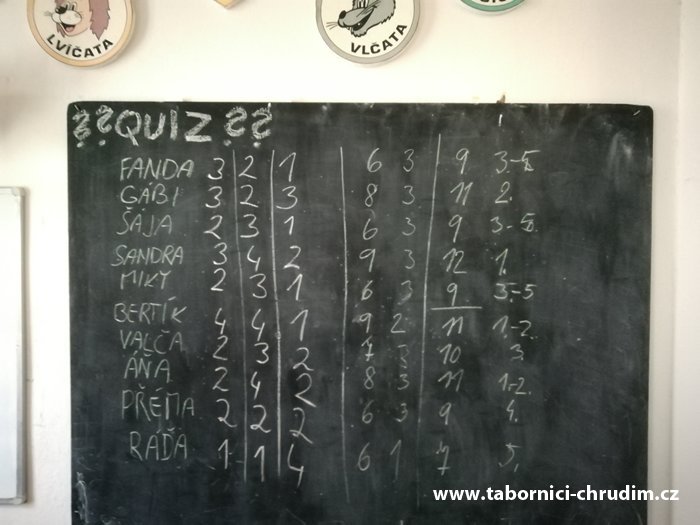 LVÍČATA
VLČATA
??QUIZ??
FANDA 3 2 1 6 3 9 3.-5.
GÁBI 3 2 3 8 3 11 2.
ŠÁJA 2 3 1 6 3 9 3.-5.
SANDRA 3 4 2 9 3 12 1.
MIKY 2 3 1 6 3 9 3.-5
BERTÍK 4 4 1 9 2 11 1.-2.
VALČA 2 3 2 7 3 10 3.
ÁŇA 2 4 2 8 3 11 1.-2.
PŘÉMA 2 2 2 6 3 9 4.
RÁĎA 1 1 4 6 1 7 5.
www.tabornici-chrudim.cz